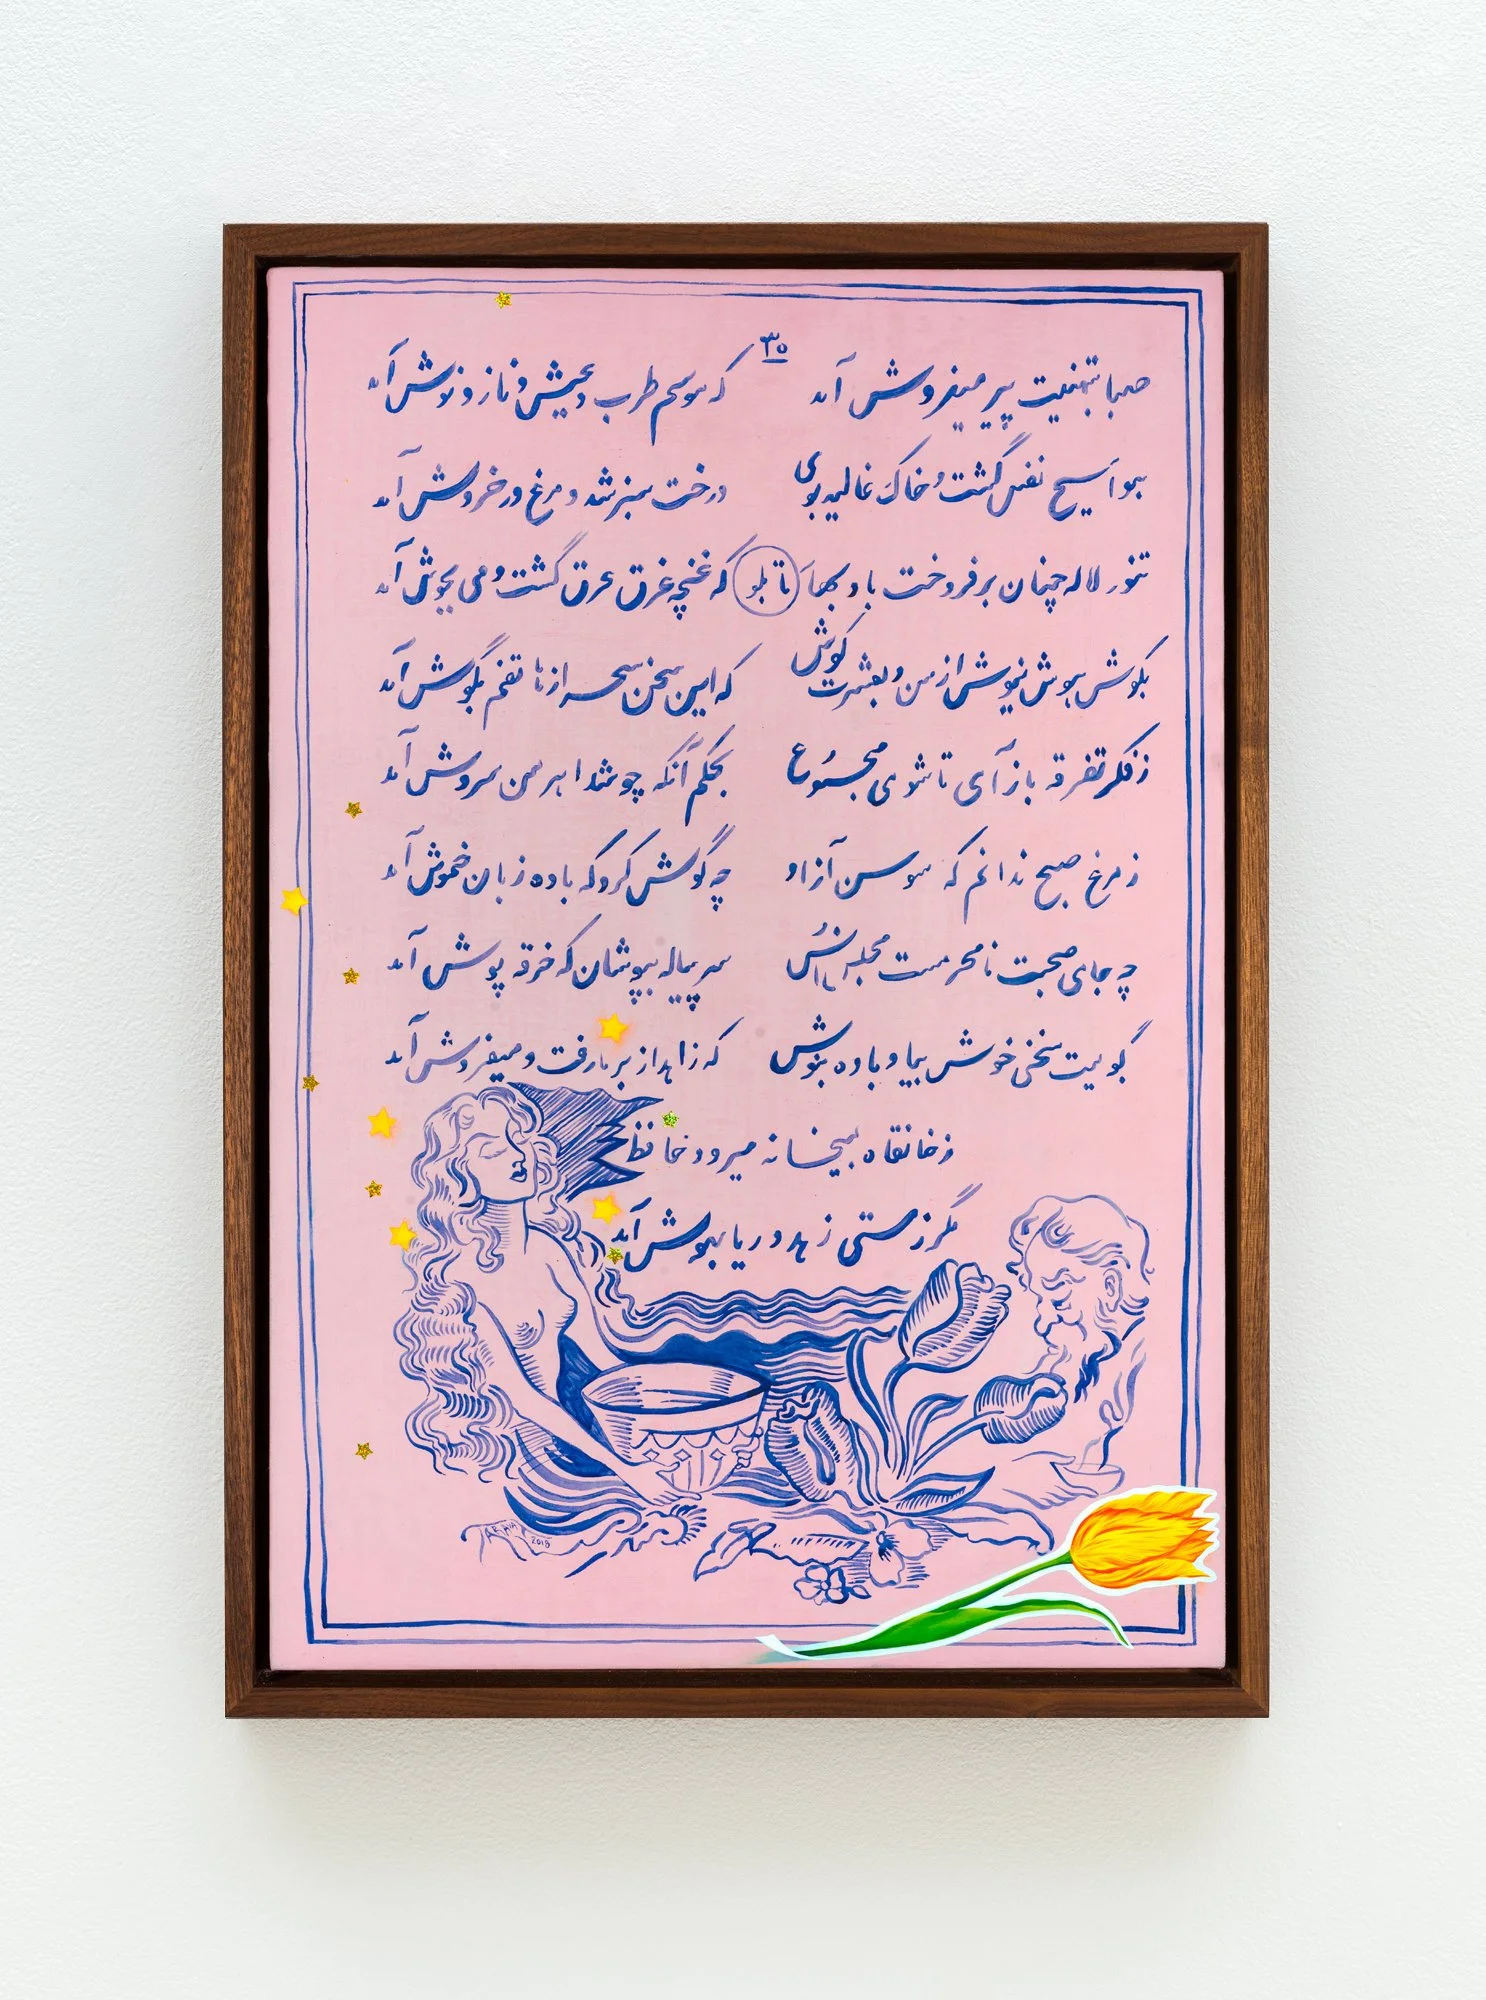 صبا بتهنیت پیر میفروش آمد که موسم طرب و عیش و ناز و نوش آمد
هوا مسیح نفس گشت و خاک غالیه بوی درخت سبز شد و مرغ در خروش آمد
تنور لاله چنان بر فروخت باد بهار تابلو که غنچه غرق عرق گشت و می بجوش آمد
بگوش هوش نیوش از من و بعشرت کوش که این سخن سحر از هاتفم بگوش آمد
ز فکر تفرقه باز آی تا شوی مجموع بحکم آنکه چو شد اهرمن سروش آمد
ز مرغ صبح ندانم که سوسن آزاد چه گوش کرد که با ده زبان خموش آمد
چه جای صحبت نامحرمست مجلس انس سر پیاله بپوشان که خرقه پوش آمد
گویمت سخنی خوش بیا و باده بنوش که زاهد از بر ما رفت و میفروش آمد
ز خانقاه بمیخانه میرود حافظ
مگر ز مستی زهد و ریا بهوش آمد
2018